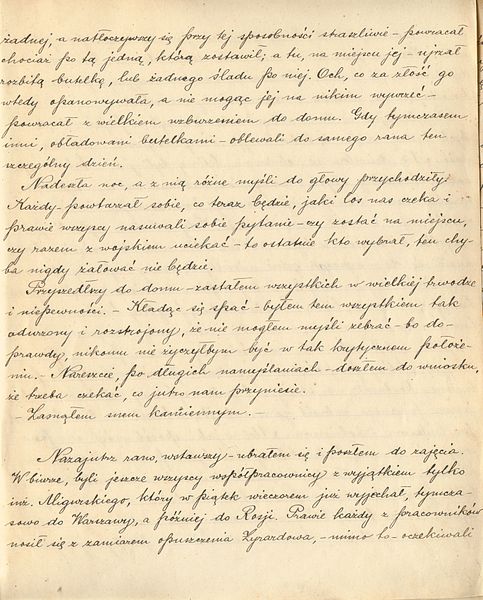 żadnej, a natłoczywszy się przy tej sposobności straszliwie – powracał
chociaż po tą jedną, którą zostawił; a tu, na miejscu jej – ujrzał
rozbitą butelkę, lub żadnego śladu po niej. Och, co za złość go
wtedy opanowywała, a nie mogąc jej na nikim wywrzeć –
powracał z wielkiem wzburzeniem do domu. Gdy tymczasem
inni, obładowani butelkami – oblewali do samego rana ten
szczególny dzień.
Nadeszła noc, a z nią różne myśli do głowy przychodziły.
Każdy – powtarzał sobie, co teraz będzie, jaki los nas czeka i
prawie wszyscy nasuwali sobie pytanie – czy zostać na miejscu,
czy razem z wojskiem uciekać – to ostatnie kto wybrał, ten chy-
ba nigdy żałować nie będzie.
Przyszedłszy do domu – zastałem wszystkich w wielkiej trwodze
i niepewności. – Kładąc się spać – byłem tem wszystkiem tak
odurzony i rozstrojony, że nie mogłem myśli zebrać – bo do-
prawdy, nikomu nie życzyłbym być w tak krytycznem położe-
niu. – Nareszcie, po długich namyślaniach – doszłem do wniosku,
że trzeba czekać, co jutro nam przyniesie.
– Zasnąłem snem kamiennym. –
Nazajutrz rano, wstawszy – ubrałem się i poszłem do zajęcia.
W biurze, byli jeszcze wszyscy współpracownicy z wyjątkiem tylko
inż. Aligurskiego, który w piątek wieczorem już wyjechał, tymcza-
sowo do Warszawy, a później do Rosji. Prawie każdy z pracowników
nosił się z zamiarem opuszczenia Żyrardowa, – mimo to – oczekiwali